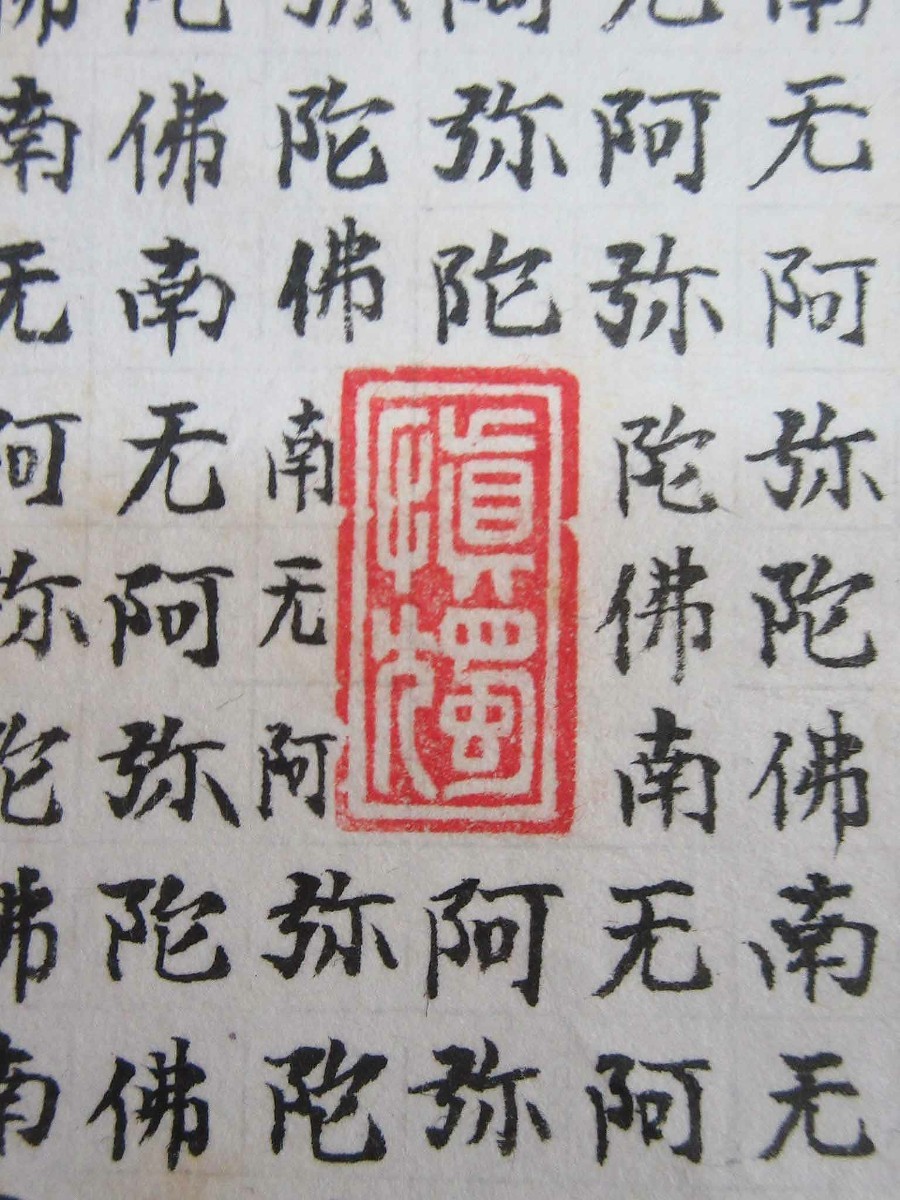 南无阿弥陀佛南无
无阿弥陀佛南无阿
阿弥陀阿弥
慎獨
弥陀佛南无阿弥陀
陀佛南无阿弥陀佛
佛南无阿弥陀佛南